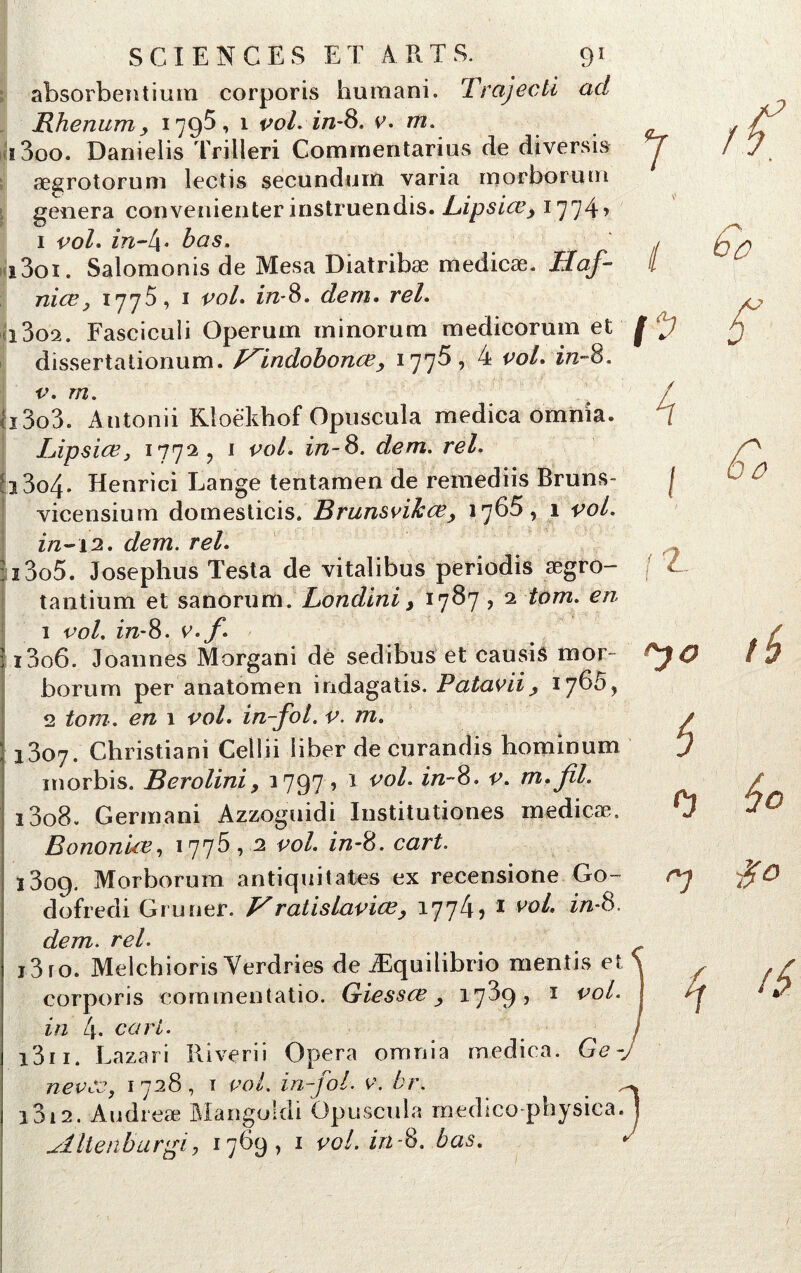 SCIENCES ET ARTS. 91
absorbentium corporis humani. Trajecti ad
Rhenum, 1795, 1 vol. in-8. v. m.
1300. Danielis Trilleri Commentarius de diversis 7 15
ægrotorum lectis secundum varia morborum
genera convenienter instruendis. Lipsiæ, 1774,
1 vol. in-4. bas.
1301. Salomonis de Mesa Diatribæ medicæ. Haf- 1 60
niæ, 1775, 1 vol. in-8. dem. rel.
1302. Fasciculi Operum minorum medicorum et 5
dissertationum. Vindobonæ, 1775, 4 vol. in-8.
v. m.
1303. Antonii Kloëkhof Opuscula medica omnia. 4
Lipsiæ, 1772, 1 vol. in-8. dem. rel.
1304. Henrici Lange tentamen de remediis Bruns- 1 60
vicensium domesticis. Brunsvikæ, 1765, 1 vol.
in-12. dem. rel.
1305. Josephus Testa de vitalibus periodis ægro- 12
tantium et sanorum. Londini, 1787, 2 tom. en
1 vol. in-8. v. f.
1306. Joannes Morgani de sedibus et causis mor- 15
borum per anatomen indagatis. Patavii, 1765,
2 tom. en 1 vol. in-fol. v. m.
1307. Christiani Cellii liber de curandis hominum 5
morbis. Berolini, 1797, 1 vol. in-8. v. m. fil.
1308. Germani Azzoguidi Institutiones medicæ. 50
Bononiæ, 1775, 2 vol. in-8. cart.
1309. Morborum antiquitates ex recensione Go-
dofredi Gruner. Vratislaviæ, 1774, 1 vol. in-8.
dem. rel.
1310. Melchioris Verdries de Æquilibrio mentis et
corporis commentatio. Giessæ, 1739, 1 vol. 4 15
in 4. cart.
1311. Lazari Riverii Opera omnia medica. Ge-
nevæ, 1728, 1 vol. in-fol. v. br.
1312. Audreæ Mangoldi Opuscula medico-physica.
Altenburgi, 1769, 1 vol. in-8. bas.